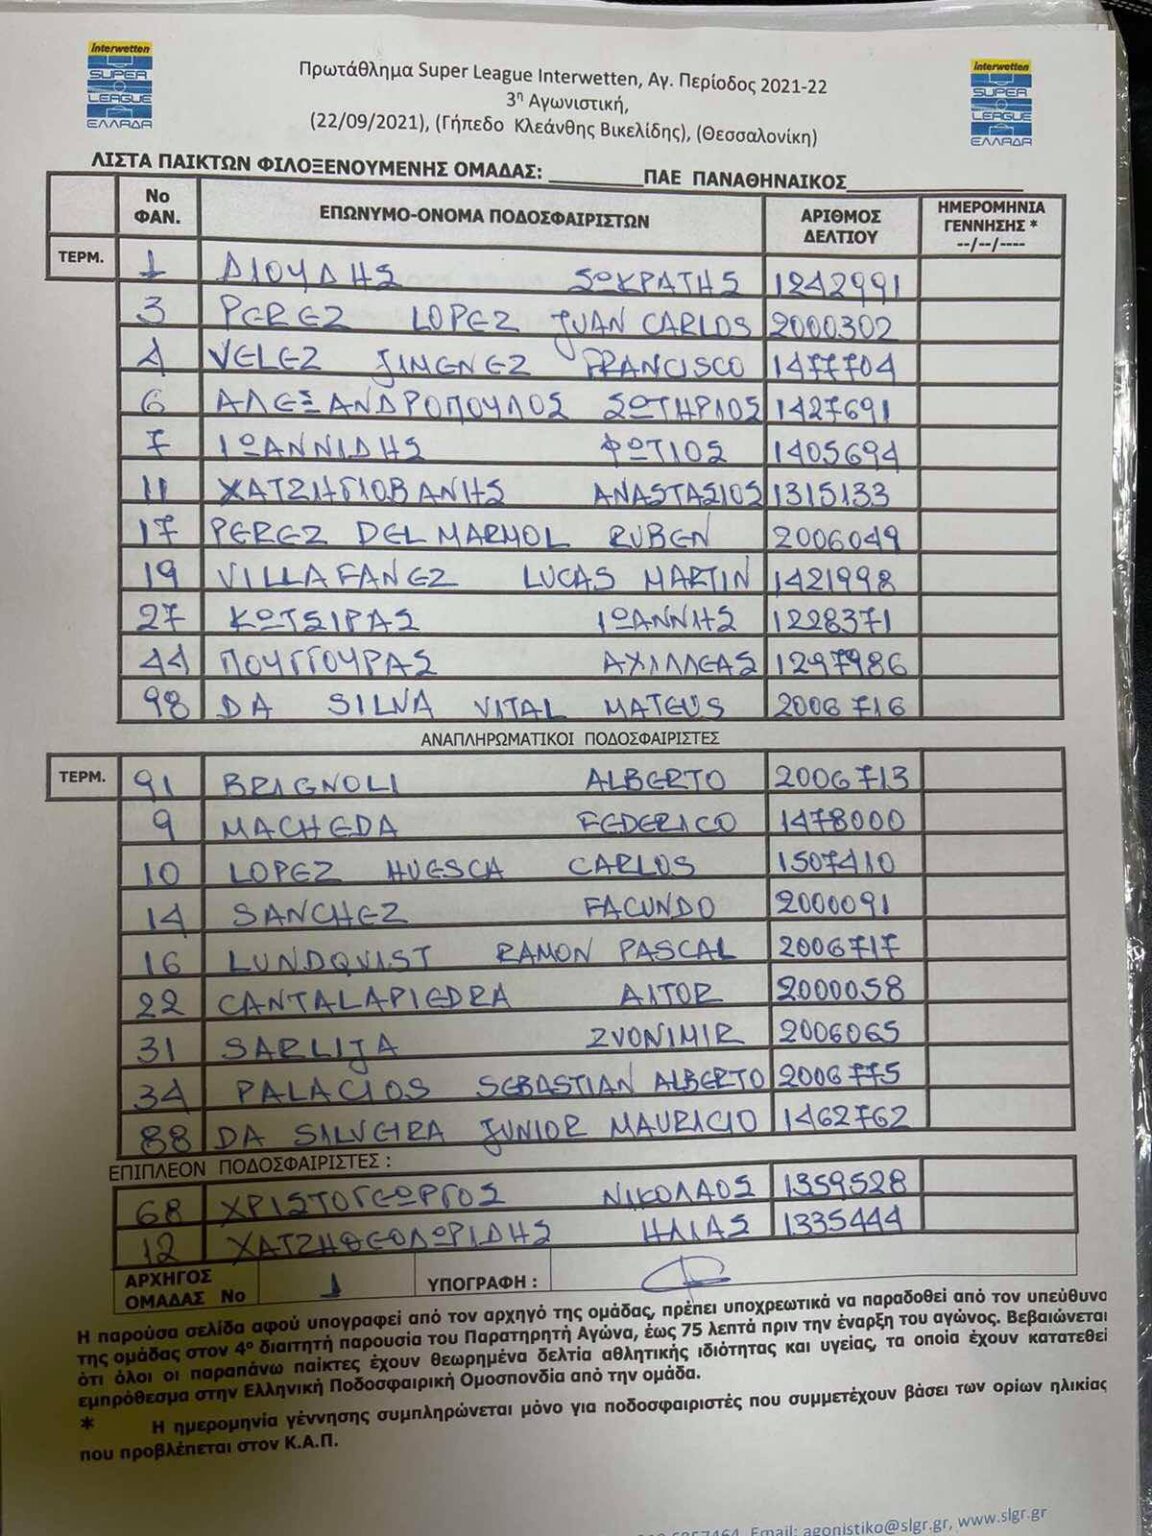 interwetten
SUPER
LEAGUE
ΕΛΛΑΔΑ
interwetten
SUPER
LEAGUE
ΕΛΛΑΔΑ
Πρωτάθλημα Super League Interwetten, Αγ. Περίοδος 2021-22
3η Αγωνιστική,
(22/09/2021), (Γήπεδο Κλεάνθης Βικελίδης), (Θεσσαλονίκη)
ΛΙΣΤΑ ΠΑΙΚΤΩΝ ΦΙΛΟΞΕΝΟΥΜΕΝΗΣ ΟΜΑΔΑΣ: ________ΠΑΕ ΠΑΝΑΘΗΝΑΙΚΟΣ________________
No ΦΑΝ. ΕΠΩΝΥΜΟ-ΟΝΟΜΑ ΠΟΔΟΣΦΑΙΡΙΣΤΩΝ ΑΡΙΘΜΟΣ ΔΕΛΤΙΟΥ ΗΜΕΡΟΜΗΝΙΑ ΓΕΝΝΗΣΗΣ * --/--/----
ΤΕΡΜ. 1 ΔΙΟΥΔΗΣ ΣΩΚΡΑΤΗΣ 1242991
3 PEREZ LOPEZ JUAN CARLOS 2000302
4 VELEZ JIMENEZ FRANCISCO 1477704
6 ΑΛΕΞΑΝΔΡΟΠΟΥΛΟΣ ΣΩΤΗΡΙΟΣ 1427691
7 ΙΩΑΝΝΙΔΗΣ ΦΩΤΙΟΣ 1405694
11 ΧΑΤΖΗΓΙΟΒΑΝΗΣ ΑΝΑΣΤΑΣΙΟΣ 1315133
17 PEREZ DEL MARMOL RUBEN 2006049
19 VILLAFANEZ LUCAS MARTIN 1421998
27 ΚΩΤΣΙΡΑΣ ΙΩΑΝΝΗΣ 1228371
44 ΠΟΥΓΓΟΥΡΑΣ ΑΧΙΛΛΕΑΣ 1297986
98 DA SILVA VITAL MATEUS 2006716
ΑΝΑΠΛΗΡΩΜΑΤΙΚΟΙ ΠΟΔΟΣΦΑΙΡΙΣΤΕΣ
ΤΕΡΜ. 91 BRIGNOLI ALBERTO 2006713
9 MACHEDA FEDERICO 1478000
10 LOPEZ HUESCA CARLOS 1507410
14 SANCHEZ FACUNDO 2000091
16 LUNDQVIST RAMON PASCAL 2006717
22 CANTALAPIEDRA AITOR 2000058
31 SARLIJA ZVONIMIR 2006065
34 PALACIOS SEBASTIAN ALBERTO 2006775
88 DA SILVEIRA JUNIOR MAURICIO 1462762
ΕΠΙΠΛΕΟΝ ΠΟΔΟΣΦΑΙΡΙΣΤΕΣ :
68 ΧΡΙΣΤΟΓΕΩΡΓΟΣ ΝΙΚΟΛΑΟΣ 1359528
12 ΧΑΤΖΗΘΕΟΔΩΡΙΔΗΣ ΗΛΙΑΣ 1335444
ΑΡΧΗΓΟΣ ΟΜΑΔΑΣ Νο 1 ΥΠΟΓΡΑΦΗ :
Η παρούσα σελίδα αφού υπογραφεί από τον αρχηγό της ομάδας, πρέπει υποχρεωτικά να παραδοθεί από τον υπεύθυνο
της ομάδας στον 4ο διαιτητή παρουσία του Παρατηρητή Αγώνα, έως 75 λεπτά πριν την έναρξη του αγώνος. Βεβαιώνεται
ότι όλοι οι παραπάνω παίκτες έχουν θεωρημένα δελτία αθλητικής ιδιότητας και υγείας, τα οποία έχουν κατατεθεί
εμπρόθεσμα στην Ελληνική Ποδοσφαιρική Ομοσπονδία από την ομάδα.
* Η ημερομηνία γέννησης συμπληρώνεται μόνο για ποδοσφαιριστές που συμμετέχουν βάσει των ορίων ηλικίας
που προβλέπεται στον Κ.Α.Π.
Email: agonistiko@slgr.gr, www.slgr.gr